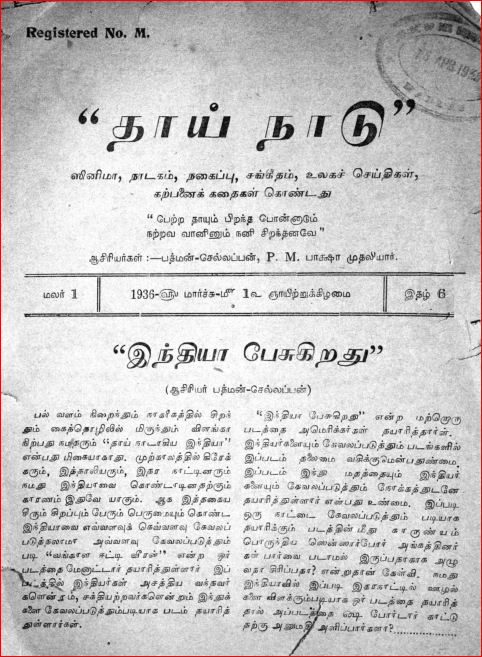 Registered No. M.
“தாய் நாடு”
ஸினிமா, நாடகம், நகைப்பு, சங்கீதம், உலகச் செய்திகள்,
கற்பனைக் கதைகள் கொண்டது
“பெற்ற தாயும் பிறந்த பொன்னாடும்
நற்றவ வானினும் நனி சிறந்தனவே”
ஆசிரியர்கள் :—பத்மன்-செல்லப்பன், P. M. பாக்ஷா முதலியார்.
மலர் 1
1936-௵ மார்ச்சு-௴ 1உ ஞாயிற்றுக்கிழமை
இதழ் 6
“இந்தியா பேசுகிறது”
(ஆசிரியர் பத்மன்-செல்லப்பன்)
பல வளம் நிறைந்தும் நாகரீகத்தில் சிறந்
தும் கைத்தொழிலில் மிகுந்தும் விளங்கா
நின்ற நமது “தாய் நாடாகிய இந்தியா”
என்பது மிகையாகாது. முற்காலத்தில் கிரேக்
கரும், இத்தாலியரும், இதர நாட்டினரும்
நமது இந்தியாவை கொண்டாடினதற்கும்
காரணம் இதுவே யாகும். ஆக இத்தகைய
சீரும் சிறப்பும் பேரும் பெருமையும் கொண்ட
இந்தியாவை எவ்வளவுக் கெவ்வளவு கேவலப்
படுத்தலாமோ அவ்வளவு கேவலப்படுத்தும்
படி “வங்காள ஈட்டி வீரன்” என்ற ஓர்
படத்தை மேனாட்டார் தயாரித்துள்ளார் இப்
படத்தில் இந்தியர்கள் அசத்திய வந்தவர்
களென்றும், சத்தியற்றவர்களென்றும் இந்துக்
களை கேவலப்படுத்தும்படியாக படம் தயாரித்
துள்ளார்கள்.
“இந்தியா பேசுகிறது” என்ற மற்றொரு
படத்தை அமெரிக்கர்கள் தயாரித்தார்கள்.
இந்தியர்களையும் கேவலப்படுத்தும் படங்களில்
இப்படம் தலைமை வகிக்குமென்பதுண்மை.
இப்படம் இந்து மதத்தையும் இந்தியர்
களையும் கேவலப்படுத்தும் நோக்கத்துடனே
தயாரித்துள்ளார் என்பது உண்மை. இப்படி
ஒரு நாட்டை கேவலப்படுத்தும் படியாக
தயாரிக்கும் படத்தின் மீது காருண்யம்
பொருந்திய ஸென்ஸார்போர் அங்கத்தினர்
கள் பார்வை படாமல் இருப்பதாகாக அழு
வதா சிரிப்பதா? என்றுதான் கேள்வி. நமது
இந்தியாவில் இப்படி இதரநாட்டில் ஊழல்
களை விளக்கும்படியாக ஓர் படத்தை தயாரித்
தால் அப்படத்தை ஷை போர்டார் காட்டு
தற்கு அனுமதி அளிப்பார்களா?..................